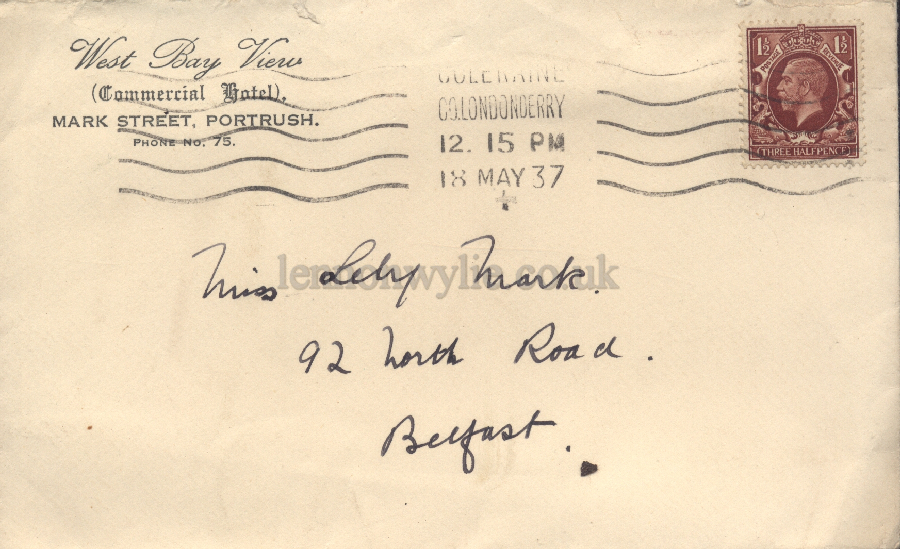 West Bay View
(Commercial Hotel),
MARK STREET, PORTRUSH.
PHONE NO. 75.
COLERAINE
CO.LONDONDERRY
12. 15 PM
18 MAY 37
1½ 1½
POSTAGE REVENUE
(THREE HALFPENCE)
Miss Lely Mark.
lennonwylie.co.uk
92 North Road.
Belfast.